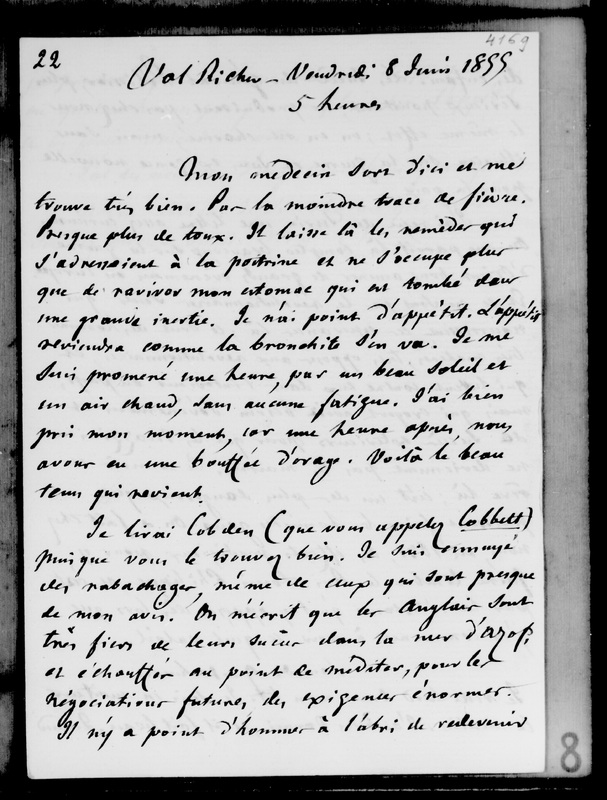 22
4169
Val Richer - Vendredi 8 Juin 1855
5 heures
Mon médecin sort d'ici et me
trouve très bien. Pas la moindre trace de fièvre.
Presque plus de toux. Il laisse là les remèdes qui
s'adressaient à la poitrine et ne s'occupe plus
que de raviver mon estomac qui est tombé dans
une grande inertie. Je n'ai point d'appétit. L'appétit
reviendra comme la bronchite s'en va. Je me
suis promené une heure, par un beau soleil et
un air chaud, sans aucune fatigue. J'ai bien
pris mon moment, car une heure après nous
avons eu une bouffée d'orage. Voilà le beau
tems qui revient.
Je lirai Cobden (que vous appelez Cobbett)
puisque vous le trouvez bien. Je suis ennuyé
des rabachages, même de ceux qui sont presque
de mon avis. On m'écrit que les Anglais sont
très fiers de leurs succès dans la mer d'Azof,
et échauffés au point de méditer, pour les
négociations futures, des exigences énormes.
Il n'y a point d'hommes à l'abri de redevenir
8